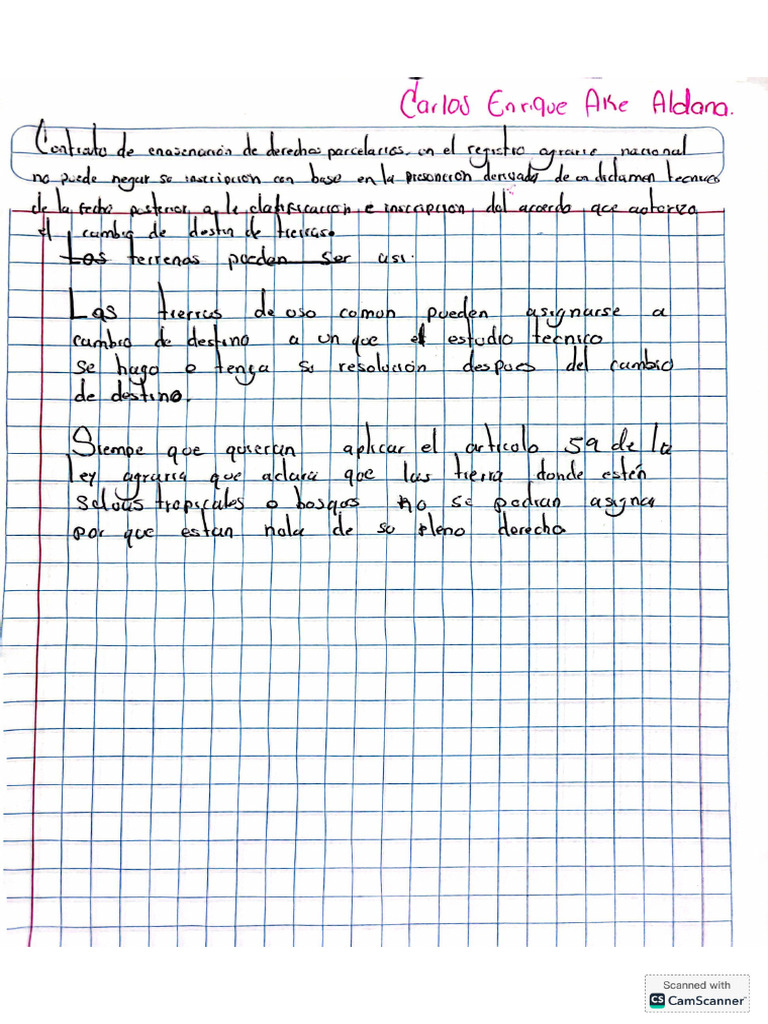 Carlos Enrique Ake Aldana.
Contrato de enajenación de derechos parcelarios, en el registro agrario nacional
no puede negar su inscripcion con base en la presoncion derivada de un dictamen tecnico
de la fecha posterior a la clasificación e inscripcion del acuerdo que autoriza
el cambio de destin de tierras.
Los terrenos pueden ser asi.
Las tierras de uso comun pueden asignarse a
cambio de destino a un que el estudio tecnico
se hago o tenga su resolución despues del cambio
de destino.
Siempe que quieran aplicar el articulo 59 de la
ley agraria que aclara que las tierra donde estén
selvas tropicales o bosqos no se podran asigna
por que estan nola de su pleno derecho
Scanned with
CS CamScanner